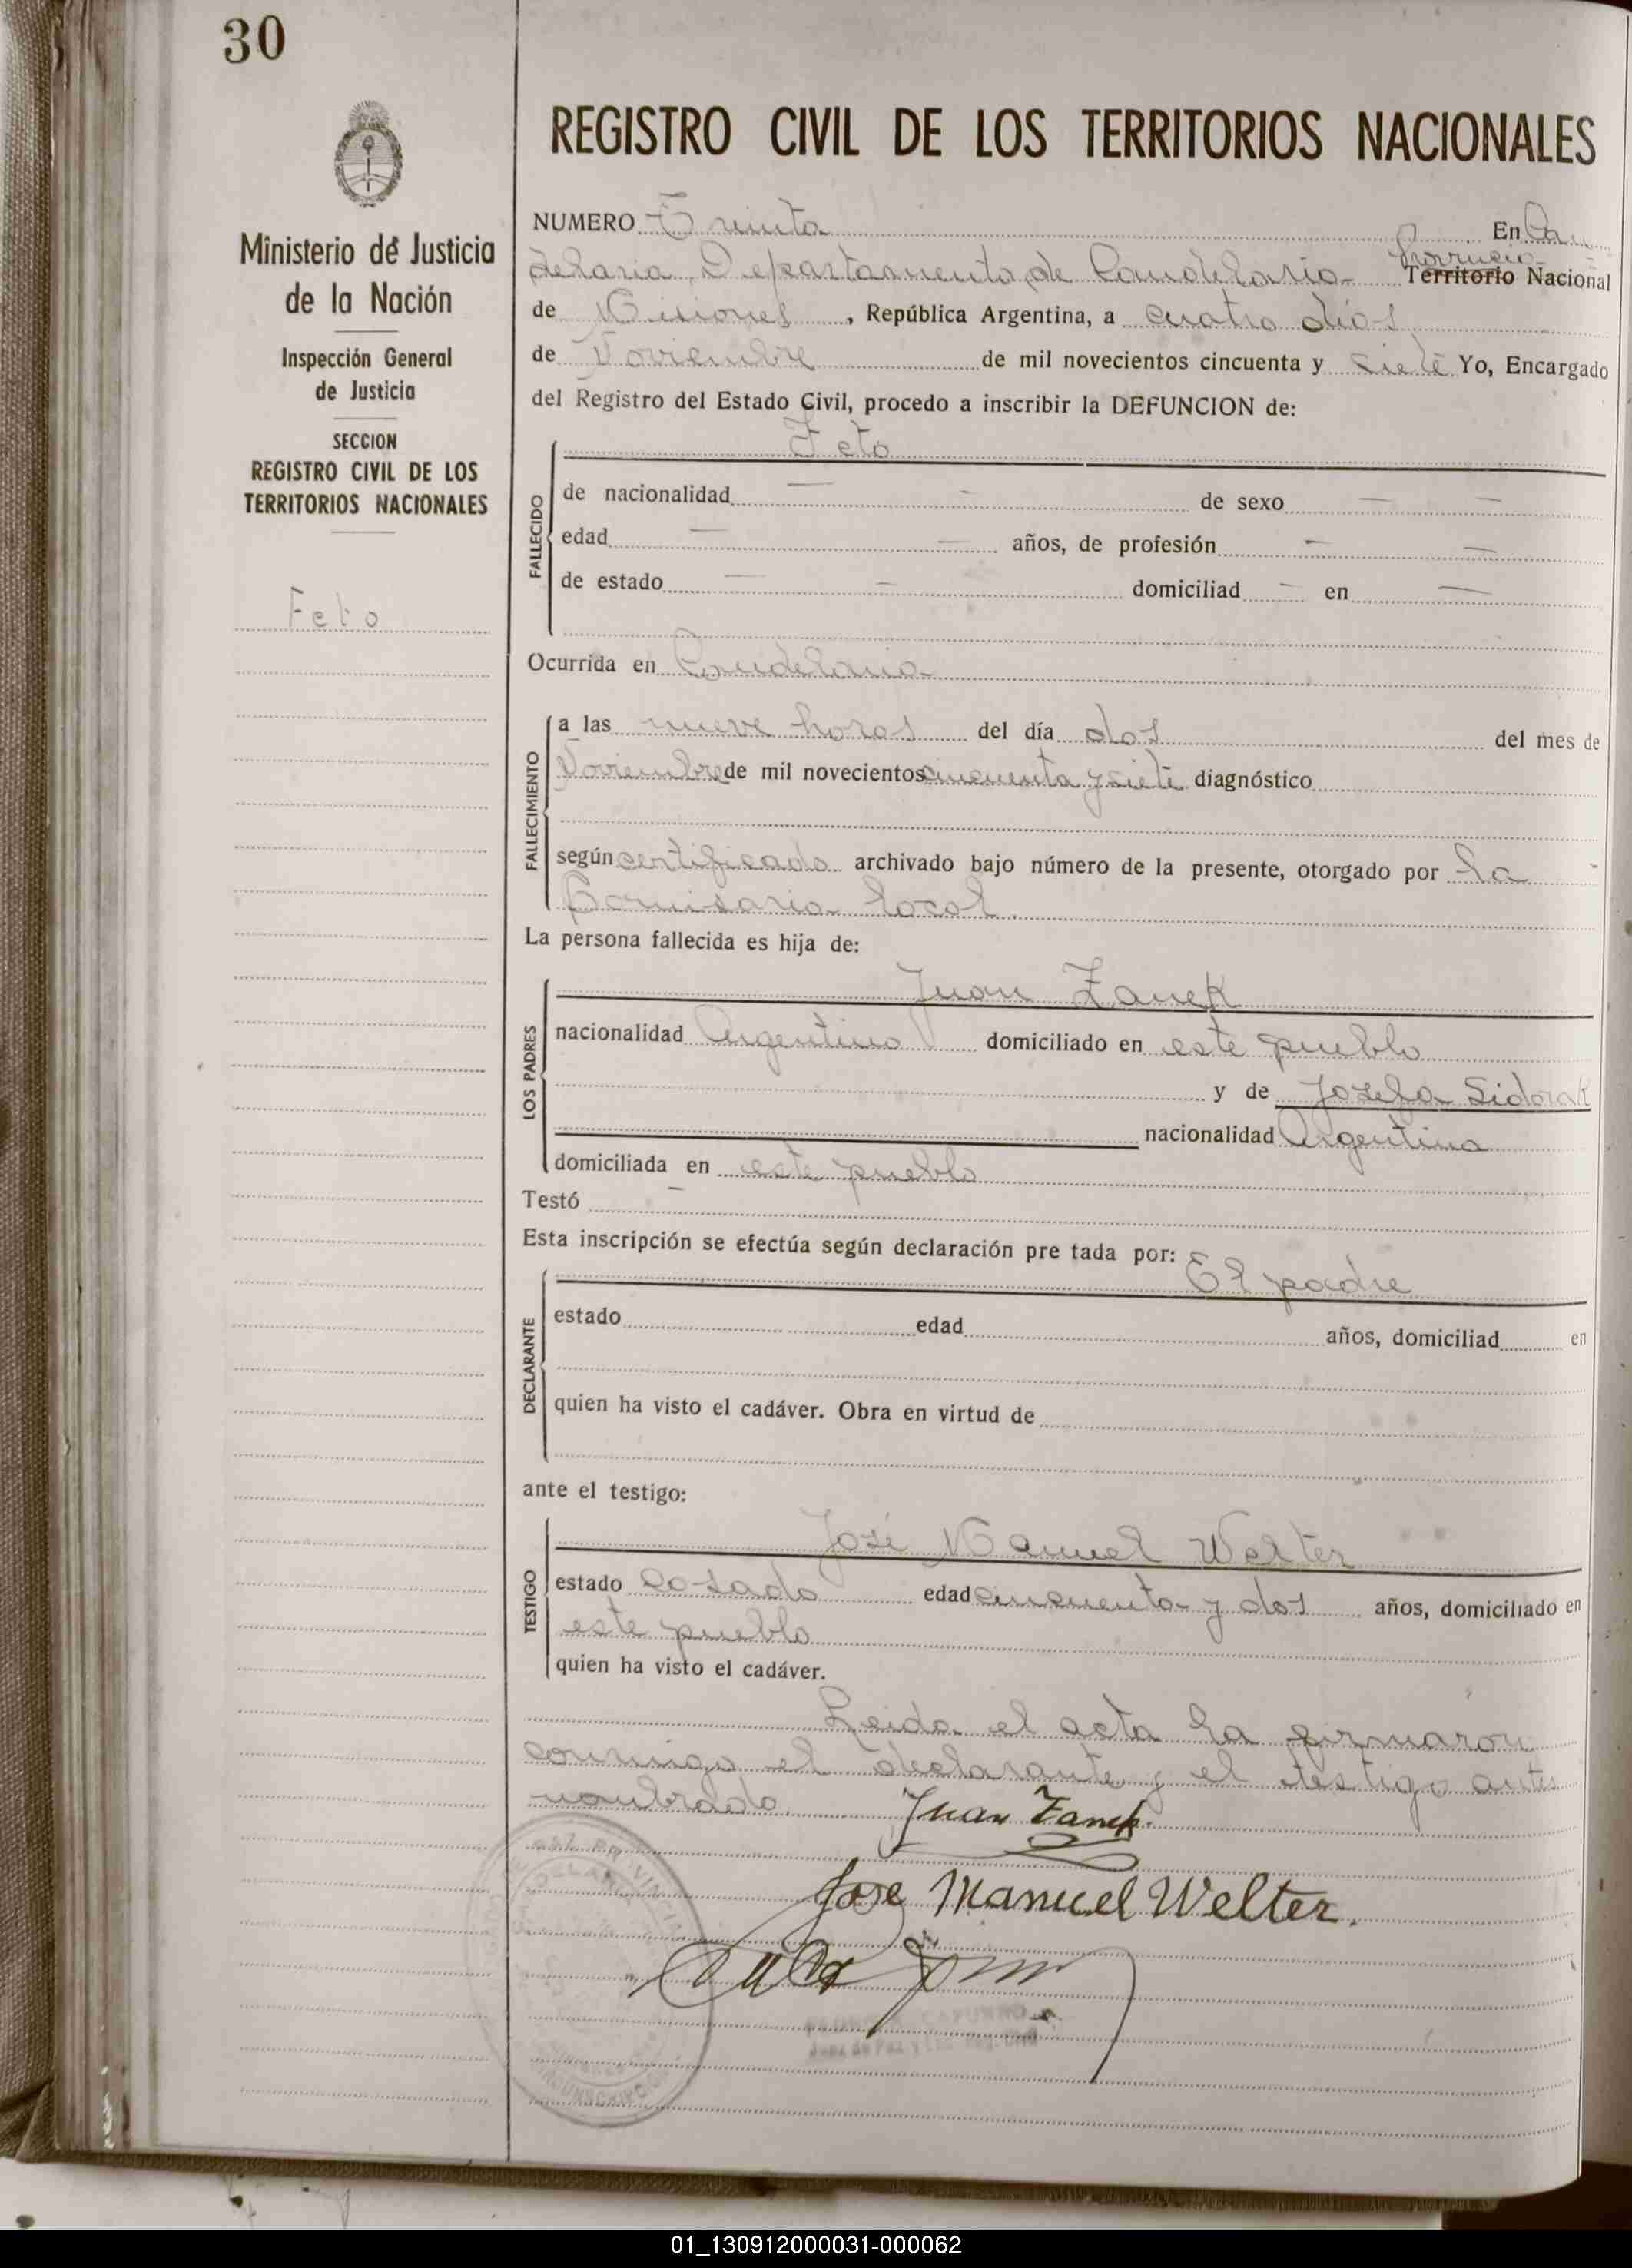 30
Ministerio de Justicia
de la Nación
Inspección General
de Justicia
SECCION
REGISTRO CIVIL DE LOS
TERRITORIOS NACIONALES
Feto
REGISTRO CIVIL DE LOS TERRITORIOS NACIONALES
NUMERO Treinta En Can
delaria, Departamento de Candelaria Provincia Territorio Nacional
de Misiones, República Argentina, a cuatro dias
de Noviembre de mil novecientos cincuenta y siete Yo, Encargado
del Registro del Estado Civil, procedo a inscribir la DEFUNCION de:
Feto
FALLECIDO
de nacionalidad — — de sexo — —
edad — — años, de profesión — —
de estado — — domiciliad — en —
Ocurrida en Candelaria
FALLECIMIENTO
a las nueve horas del día dos del mes de
Noviembre de mil novecientos cincuenta y siete diagnóstico
según certificado archivado bajo número de la presente, otorgado por la
Comisaria local.
La persona fallecida es hija de:
LOS PADRES
Juan Zanek
nacionalidad Argentino domiciliado en este pueblo
y de Josefa Sidorak
nacionalidad Argentina
domiciliada en este pueblo
Testó —
Esta inscripción se efectúa según declaración pre tada por:
El padre
DECLARANTE
estado edad años, domiciliad en
quien ha visto el cadáver. Obra en virtud de
ante el testigo:
José Manuel Welter
TESTIGO
estado casado edad cincuenta y dos años, domiciliado en
este pueblo
quien ha visto el cadáver.
Leida el acta la firmaron
conmigo el declarante y el testigo antes
nombrado.
Juan Zanek.
Jose Manuel Welter.
01_130912000031-000062